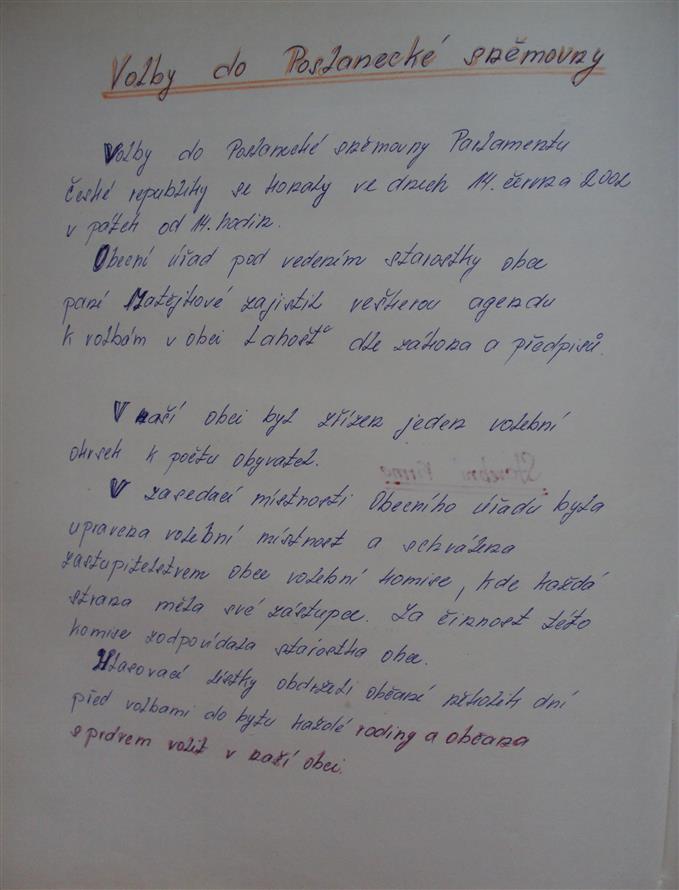 Volby do Poslanecké sněmovny
Volby do Poslanecké sněmovny Parlamentu
České republiky se konaly ve dnech 14. června 2002
v pátek od 14. hodin.
Obecní úřad pod vedením starostky obce
paní Matějkové zajistil veškerou agendu
k volbám v obci Lahošť dle zákona a předpisů.
V naší obci byl zřízen jeden volební
okrsek k počtu obyvatel.
V zasedací místnosti Obecního úřadu byla
upravena volební místnost a schválena
zastupitelstvem obce volební komise, kde každá
strana měla své zástupce. Za činnost této
komise zodpovídala starostka obce.
Hlasovací lístky obdrželi občané několik dní
před volbami do bytu každé rodiny a občana
s právem volit v naší obci.